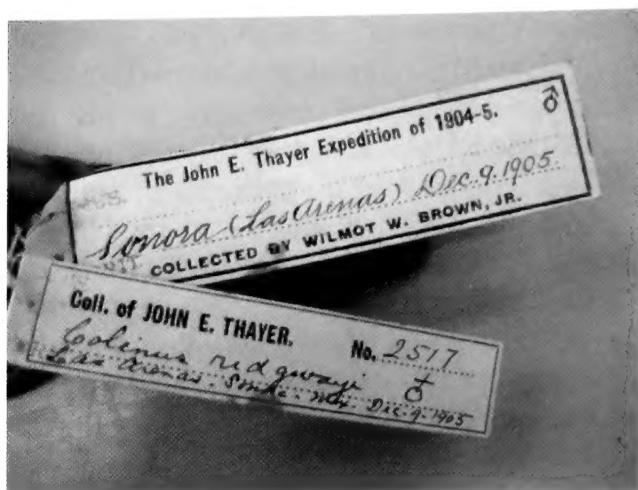 The John E. Thayer Expedition of 1904-5. ♂
Sonora (Las Arenas) Dec. 9. 1905
COLLECTED BY WILMOT W. BROWN, JR.
Coll. of JOHN E. THAYER.
No. 2517
Colinus ridgwayi ♂
Las Arenas. Mex. Dec. 9. 1905